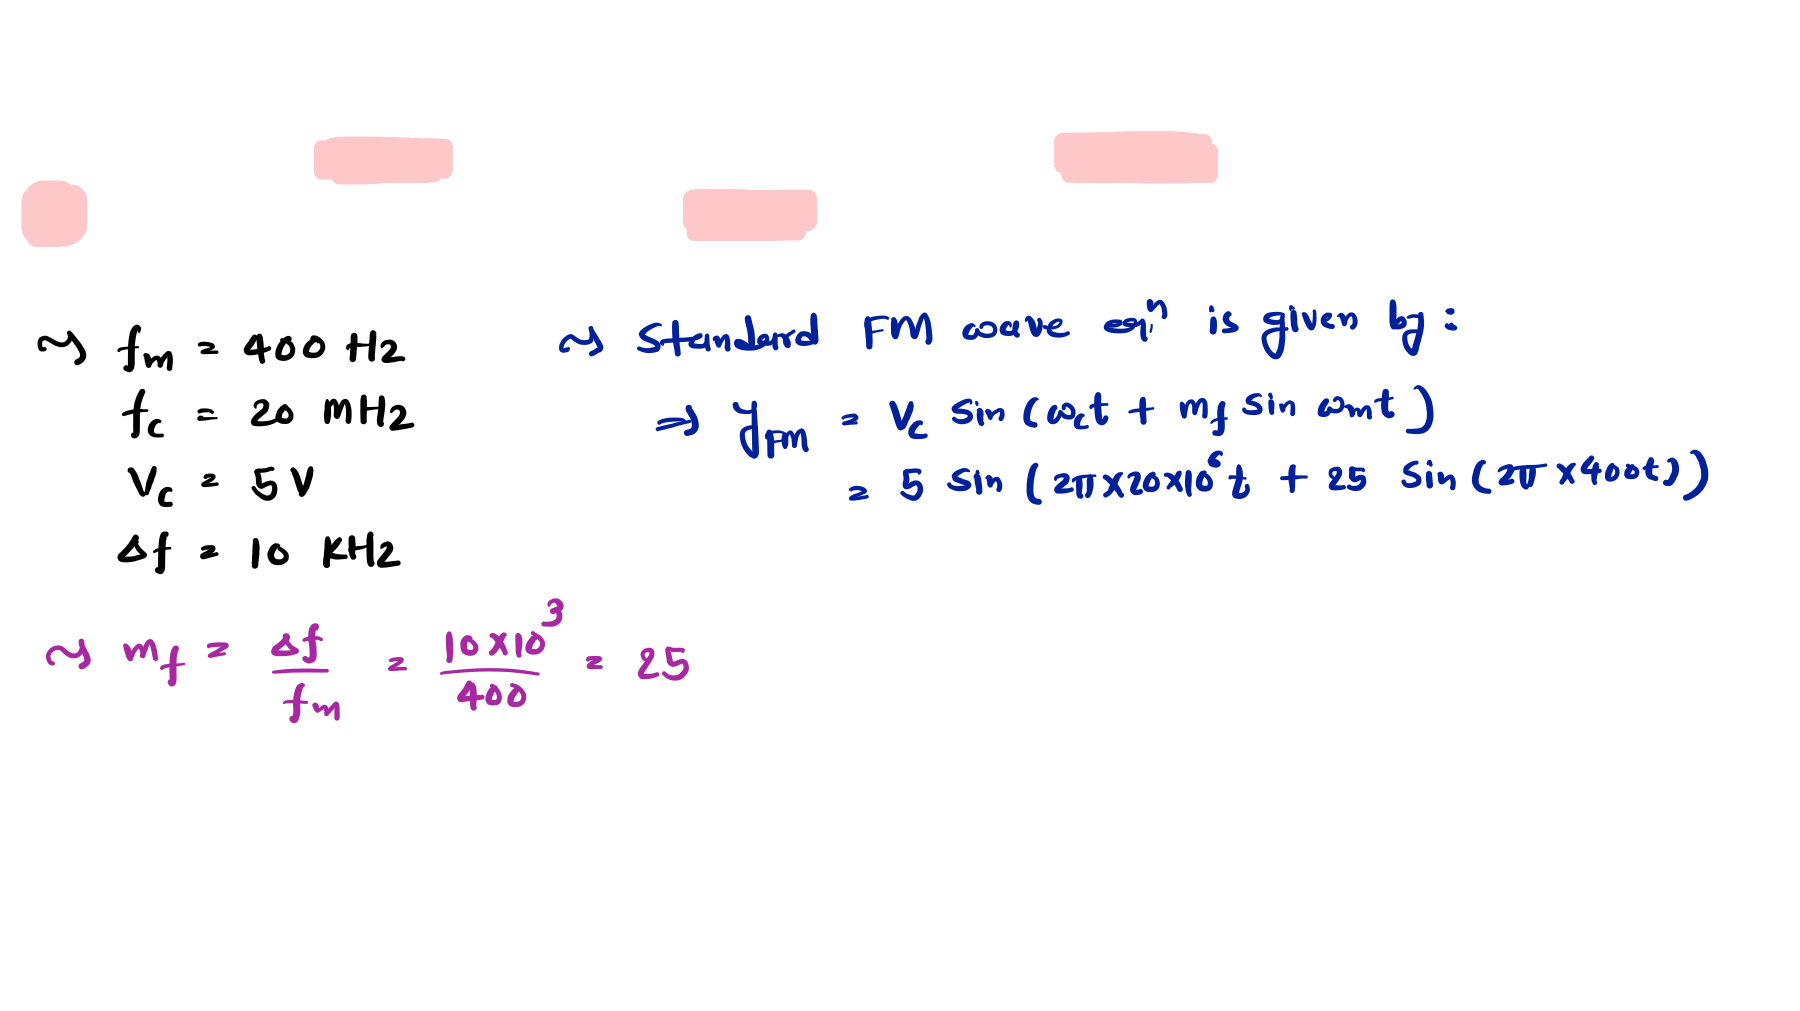 ~> fm = 400 Hz
fc = 20 MHz
Vc = 5 V
Δf = 10 KHz
~> mf = Δf/fm = 10×10³/400 = 25
~> Standard FM wave eqⁿ is given by:
⇒ yFM = Vc Sin (ωct + mf Sin ωmt)
= 5 Sin (2π×20×10⁶t + 25 Sin (2π×400t))